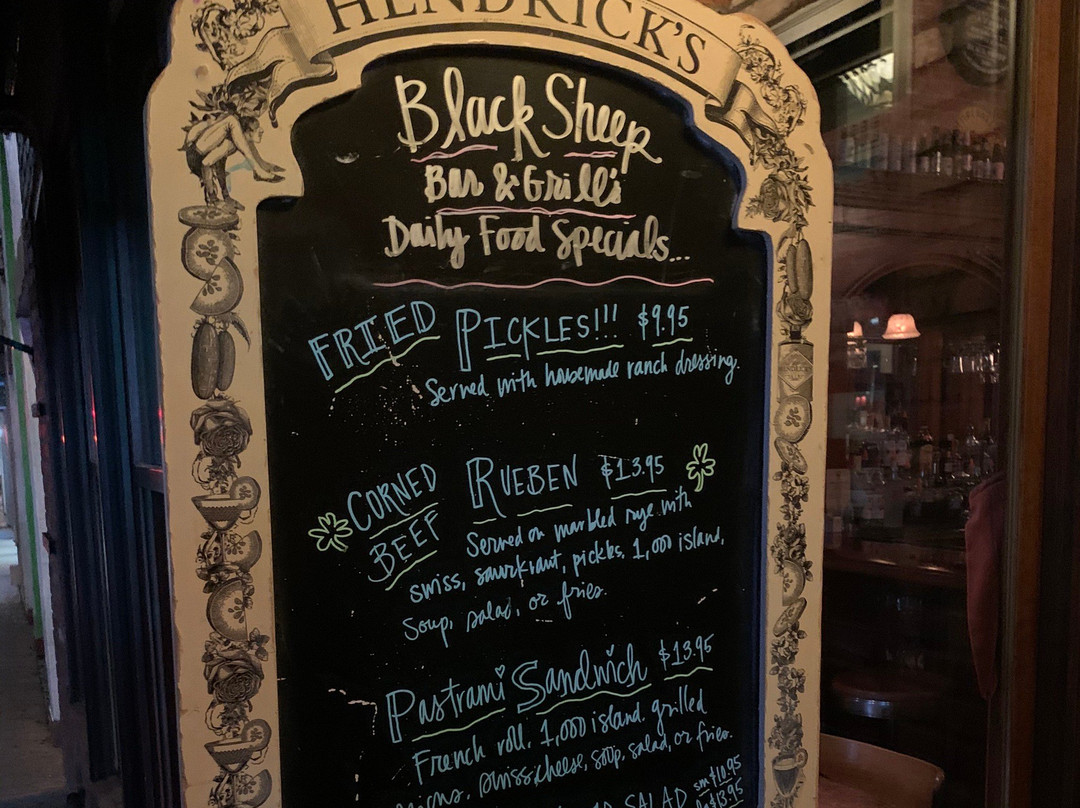 HENDRICK'S
Black Sheep
Bar & Grill's
Daily Food Specials...
FRIED PICKLES!!! $9.95
Served with housemade ranch dressing.
CORNED BEEF RUEBEN $13.95
Served on marbled rye with
swiss, saurkraut, pickles, 1,000 island,
soup, salad, or fries.
Pastrami Sandwich $13.95
French roll, 1,000 island, grilled
swiss cheese, soup, salad, or fries.
SALAD sm $10.95
lg $13.95